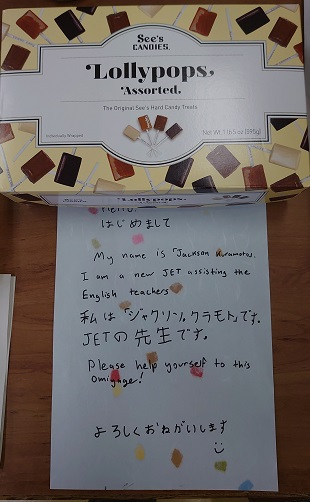 See's
CANDIES®
Lollypops
Assorted.
The Original See's Hard Candy Treats
Individually Wrapped
Net Wt. 1 lb 5 oz (595g)
Lollypops
Hello.
はじめまして
My name is "Jackson Kuramoto.
I am a new JET assisting the
English teachers
私は「ジャクソン。クラモト」です。
JETの先生です。
Please help yourself to this
Omiyage!
よろしくおねがいします